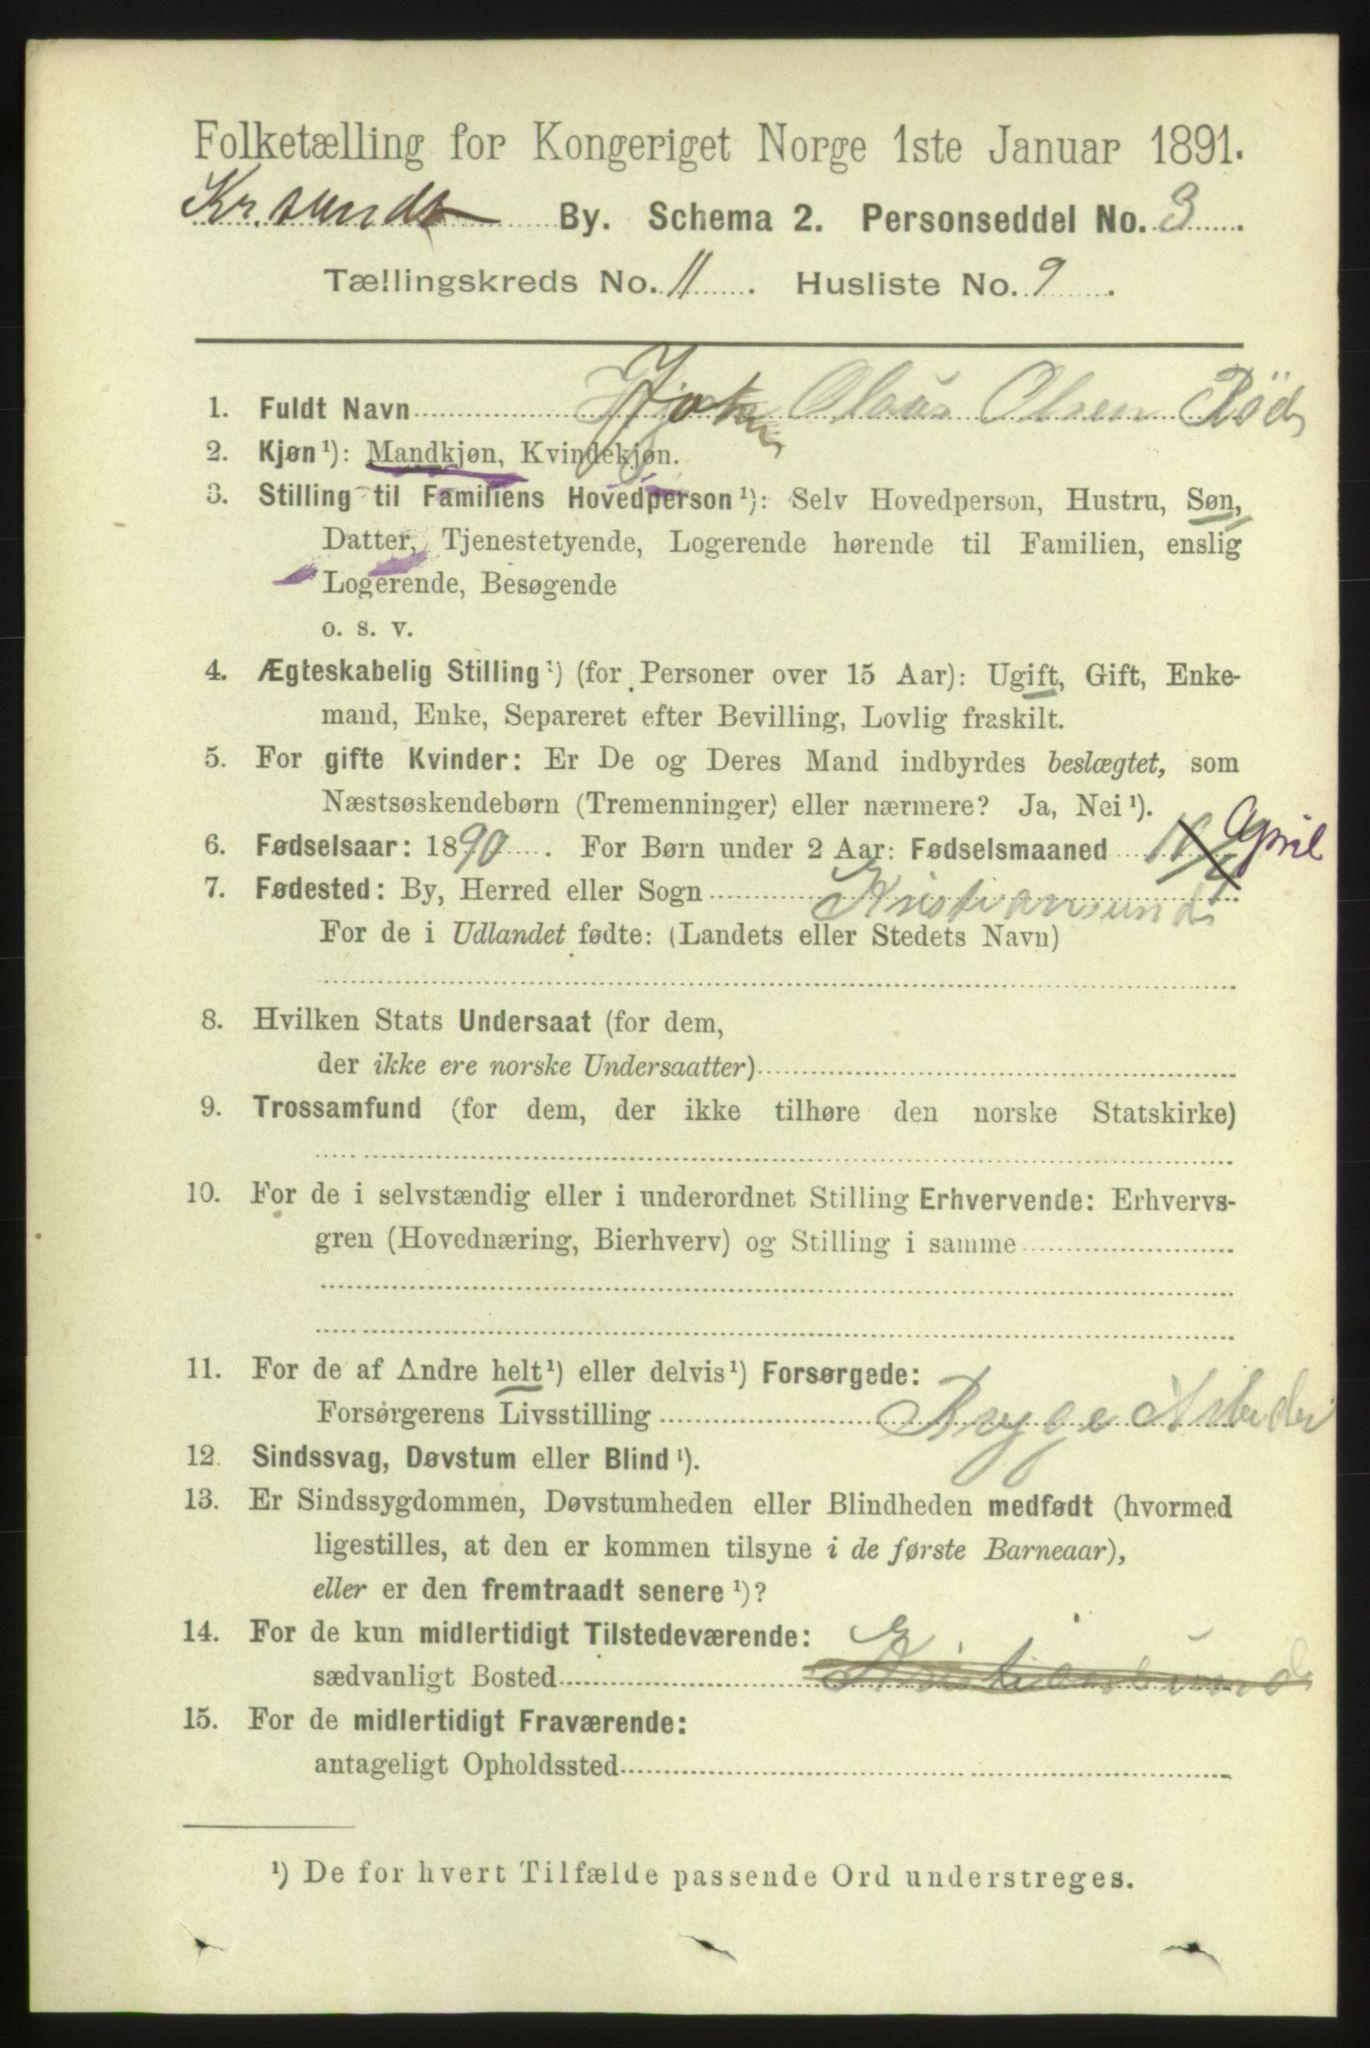 Folketælling for Kongeriget Norge 1ste Januar 1891.
Kr.sunds By. Schema 2. Personseddel No. 3
Tællingskreds No. 11. Husliste No. 9.
1. Fuldt Navn Olaus Olsen Röd
2. Kjøn¹): Mandkjøn, Kvindekjøn.
3. Stilling til Familiens Hovedperson¹): Selv Hovedperson, Hustru, Søn,
Datter, Tjenestetyende, Logerende hørende til Familien, enslig
Logerende, Besøgende
o. s. v.
4. Ægteskabelig Stilling¹) (for Personer over 15 Aar): Ugift, Gift, Enke-
mand, Enke, Separeret efter Bevilling, Lovlig fraskilt.
5. For gifte Kvinder: Er De og Deres Mand indbyrdes beslægtet, som
Næstsøskendebørn (Tremenninger) eller nærmere? Ja, Nei¹).
6. Fødselsaar: 1890. For Børn under 2 Aar: Fødselsmaaned April
7. Fødested: By, Herred eller Sogn Kristiansund
For de i Udlandet fødte: (Landets eller Stedets Navn)
8. Hvilken Stats Undersaat (for dem,
der ikke ere norske Undersaatter)
9. Trossamfund (for dem, der ikke tilhøre den norske Statskirke)
10. For de i selvstændig eller i underordnet Stilling Erhvervende: Erhvervs-
gren (Hovednæring, Bierhverv) og Stilling i samme
11. For de af Andre helt¹) eller delvis¹) Forsørgede:
Forsørgerens Livsstilling Brygge Arbeider
12. Sindssvag, Døvstum eller Blind¹).
13. Er Sindssygdommen, Døvstumheden eller Blindheden medfødt (hvormed
ligestilles, at den er kommen tilsyne i de første Barneaar),
eller er den fremtraadt senere¹)?
14. For de kun midlertidigt Tilstedeværende:
sædvanligt Bosted Kristiansund
15. For de midlertidigt Fraværende:
antageligt Opholdssted
¹) De for hvert Tilfælde passende Ord understreges.